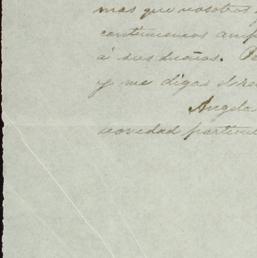 mas que vosotros
continuemos
á sus dueños.
y me digas
Angela
novedad particul